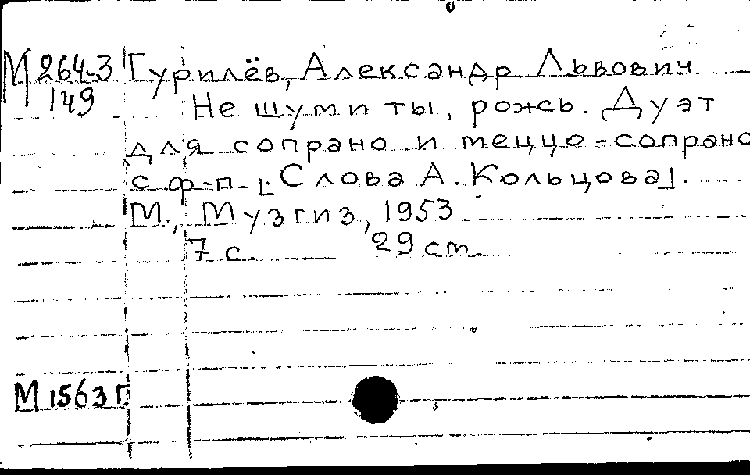 М 264-3 Гурилёв, Александр Львович
149 Не шуми ты, рожь. Дуэт
для сопрано и меццо-сопрано
с ф-п. [Слова А. Кольцова].
М., Музгиз, 1953
7 с. 29 см.
М 1563 г